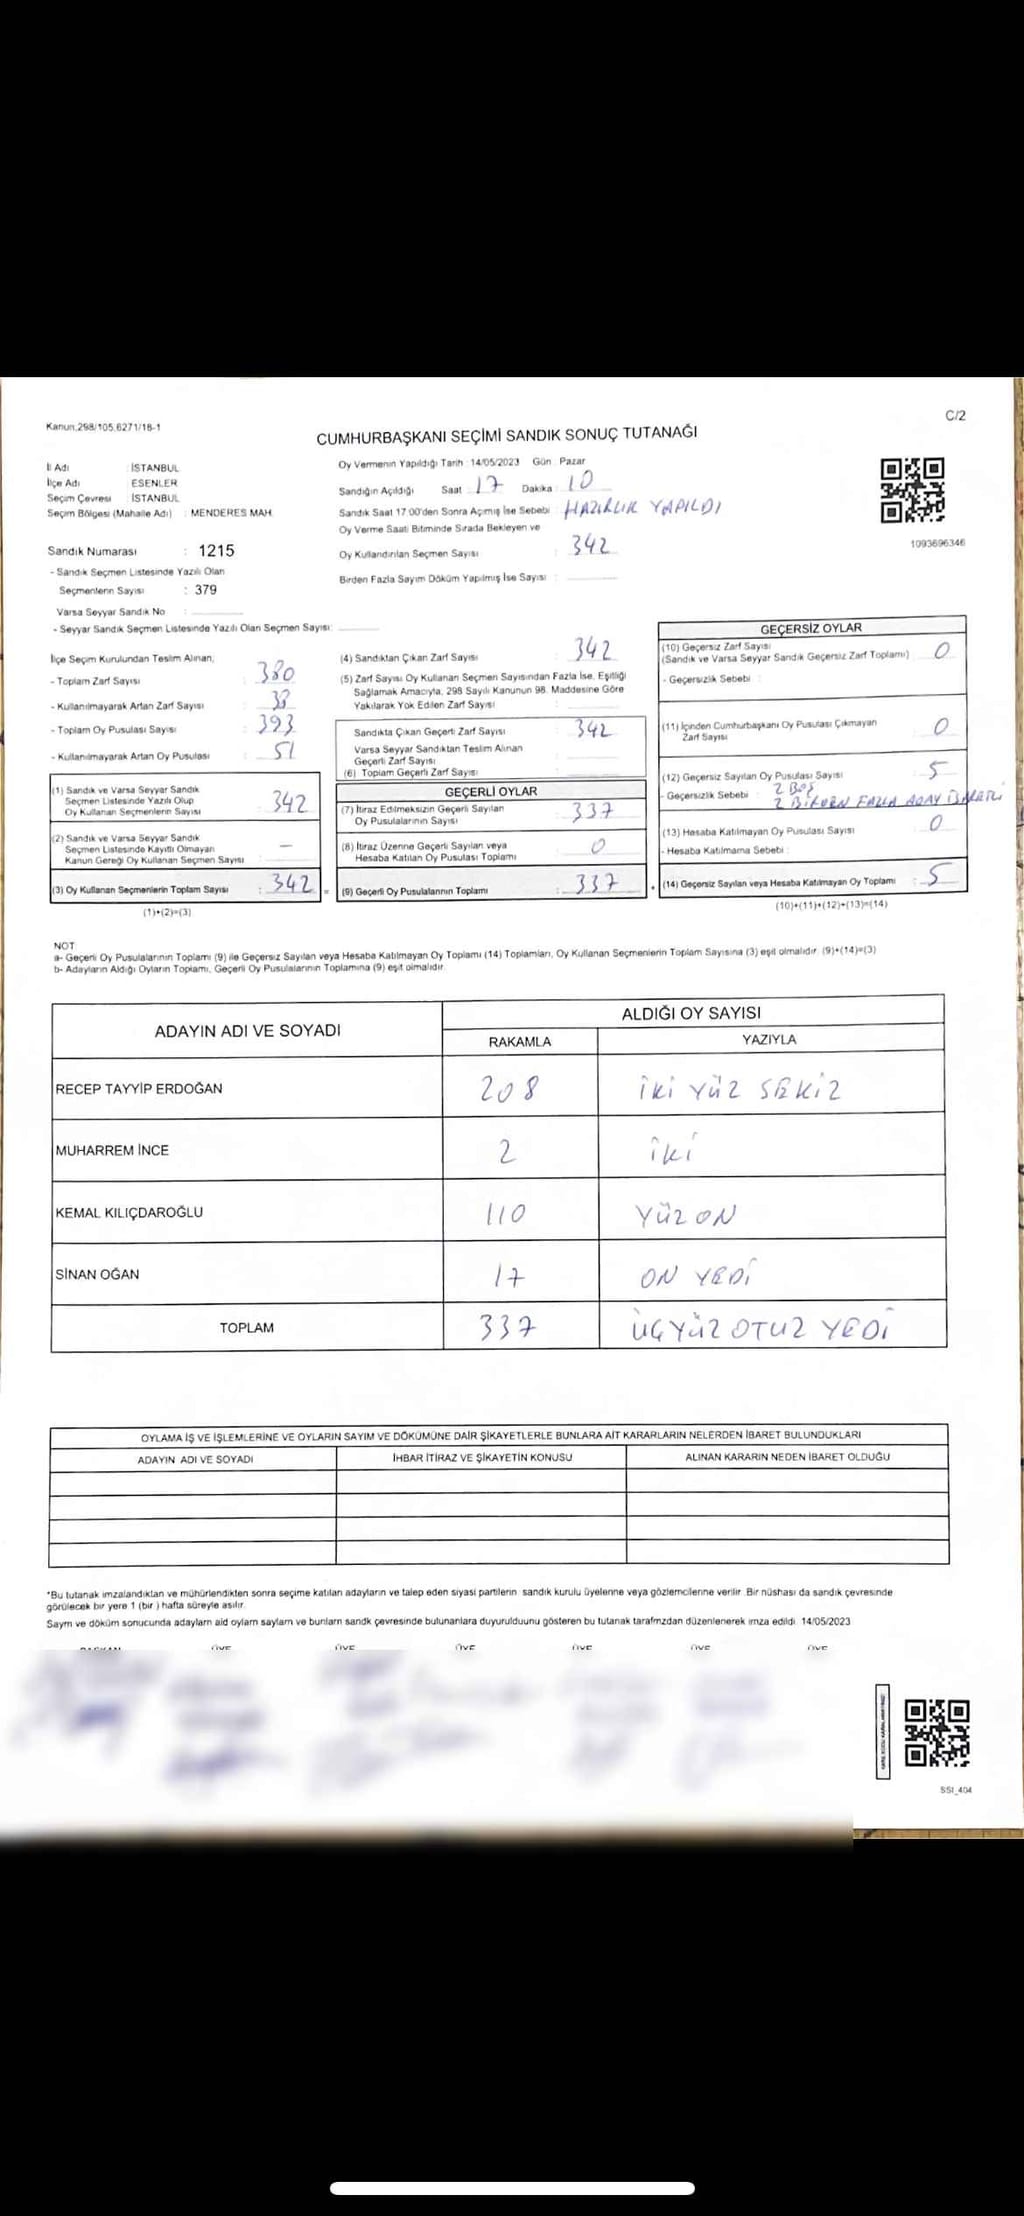 Kanun.298/105.6271/18-1
C/2
CUMHURBAŞKANI SEÇİMİ SANDIK SONUÇ TUTANAĞI
İl Adı : İSTANBUL
İlçe Adı : ESENLER
Seçim Çevresi : İSTANBUL
Seçim Bölgesi (Mahalle Adı) : MENDERES MAH.
Oy Vermenin Yapıldığı Tarih : 14/05/2023 Gün : Pazar
Sandığın Açıldığı Saat : 17 Dakika : 10
Sandık Saat 17:00'den Sonra Açımış İse Sebebi : HAZIRLIK YAPILDI
Oy Verme Saati Bitiminde Sırada Bekleyen ve
Oy Kullandırılan Seçmen Sayısı : 342
Birden Fazla Sayım Döküm Yapılmış İse Sayısı :
1093696346
Sandık Numarası : 1215
- Sandık Seçmen Listesinde Yazılı Olan
Seçmenlerin Sayısı : 379
Varsa Seyyar Sandık No :
- Seyyar Sandık Seçmen Listesinde Yazılı Olan Seçmen Sayısı:
İlçe Seçim Kurulundan Teslim Alınan;
- Toplam Zarf Sayısı : 380
- Kullanılmayarak Artan Zarf Sayısı : 38
- Toplam Oy Pusulası Sayısı : 393
- Kullanılmayarak Artan Oy Pusulası : 51
(1) Sandık ve Varsa Seyyar Sandık
Seçmen Listesinde Yazılı Olup
Oy Kullanan Seçmenlerin Sayısı : 342
(2) Sandık ve Varsa Seyyar Sandık
Seçmen Listesinde Kayıtlı Olmayan
Kanun Gereği Oy Kullanan Seçmen Sayısı : –
(3) Oy Kullanan Seçmenlerin Toplam Sayısı : 342 =
(1)+(2)=(3)
(4) Sandıktan Çıkan Zarf Sayısı : 342
(5) Zarf Sayısı Oy Kullanan Seçmen Sayısından Fazla İse, Eşitliği
Sağlamak Amacıyla, 298 Sayılı Kanunun 98. Maddesine Göre
Yakılarak Yok Edilen Zarf Sayısı :
Sandıkta Çıkan Geçerli Zarf Sayısı : 342
Varsa Seyyar Sandıktan Teslim Alınan
Geçerli Zarf Sayısı :
(6) Toplam Geçerli Zarf Sayısı :
GEÇERLİ OYLAR
(7) İtiraz Edilmeksizin Geçerli Sayılan
Oy Pusulalarının Sayısı : 337
(8) İtiraz Üzerine Geçerli Sayılan veya
Hesaba Katılan Oy Pusulası Toplamı : 0
(9) Geçerli Oy Pusulalarının Toplamı : 337 +
GEÇERSİZ OYLAR
(10) Geçersiz Zarf Sayısı
(Sandık ve Varsa Seyyar Sandık Geçersiz Zarf Toplamı) : 0
- Geçersizlik Sebebi :
(11) İçinden Cumhurbaşkanı Oy Pusulası Çıkmayan
Zarf Sayısı : 0
(12) Geçersiz Sayılan Oy Pusulası Sayısı : 5
- Geçersizlik Sebebi : 2 BOŞ
2 BİRDEN FAZLA ADAY İŞARETLİ
(13) Hesaba Katılmayan Oy Pusulası Sayısı : 0
- Hesaba Katılmama Sebebi :
(14) Geçersiz Sayılan veya Hesaba Katılmayan Oy Toplamı : 5
(10)+(11)+(12)+(13)=(14)
NOT
a- Geçerli Oy Pusulalarının Toplamı (9) ile Geçersiz Sayılan veya Hesaba Katılmayan Oy Toplamı (14) Toplamları, Oy Kullanan Seçmenlerin Toplam Sayısına (3) eşit olmalıdır. (9)+(14)=(3)
b- Adayların Aldığı Oyların Toplamı, Geçerli Oy Pusulalarının Toplamına (9) eşit olmalıdır.
ADAYIN ADI VE SOYADI
ALDIĞI OY SAYISI
RAKAMLA YAZIYLA
RECEP TAYYİP ERDOĞAN 208 İKİ YÜZ SEKİZ
MUHARREM İNCE 2 İKİ
KEMAL KILIÇDAROĞLU 110 YÜZ ON
SİNAN OĞAN 17 ON YEDİ
TOPLAM 337 ÜÇ YÜZ OTUZ YEDİ
OYLAMA İŞ VE İŞLEMLERİNE VE OYLARIN SAYIM VE DÖKÜMÜNE DAİR ŞİKAYETLERLE BUNLARA AİT KARARLARIN NELERDEN İBARET BULUNDUKLARI
ADAYIN ADI VE SOYADI İHBAR İTİRAZ VE ŞİKAYETİN KONUSU ALINAN KARARIN NEDEN İBARET OLDUĞU
*Bu tutanak imzalandıktan ve mühürlendikten sonra seçime katılan adayların ve talep eden siyasi partilerin sandık kurulu üyelerine veya gözlemcilerine verilir. Bir nüshası da sandık çevresinde
görülecek bir yere 1 (bir) hafta süreyle asılır.
Sayım ve döküm sonucunda adayların aid oyların sayıları ve bunların sandk çevresinde bulunanlara duyurulduunu gösteren bu tutanak tarafmzdan düzenlenerek imza edildi. 14/05/2023
BAŞKAN ÜYE ÜYE ÜYE ÜYE ÜYE ÜYE
SSI_404